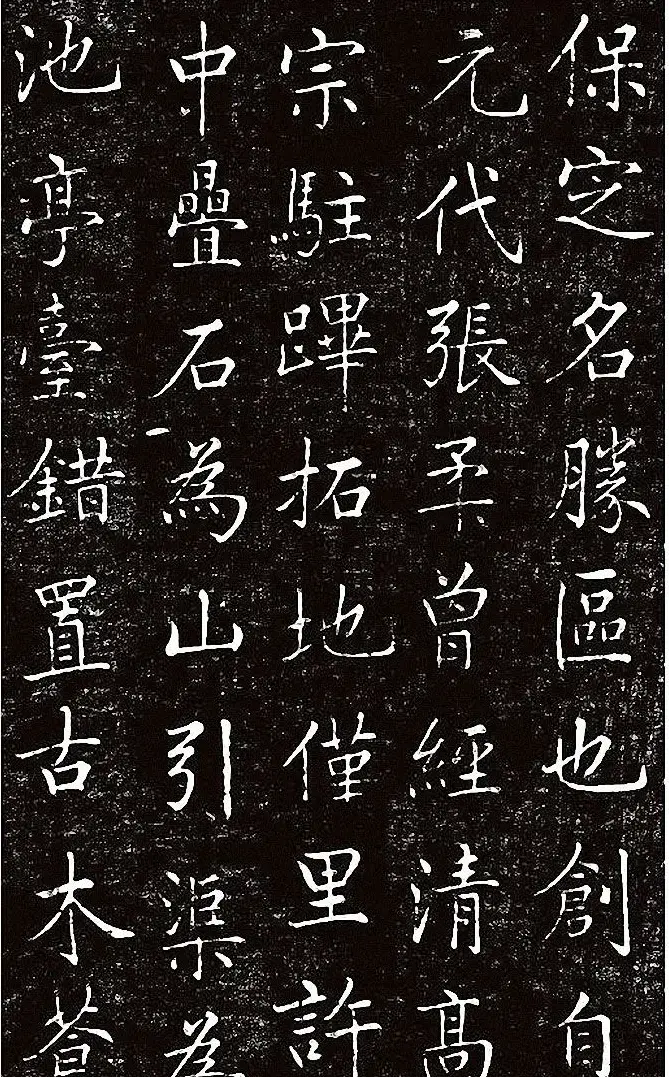 保定名勝區也創自
元代張柔曾經清高
宗駐蹕拓地僅里許
中疊石為山引渠為
池亭臺錯置古木蒼